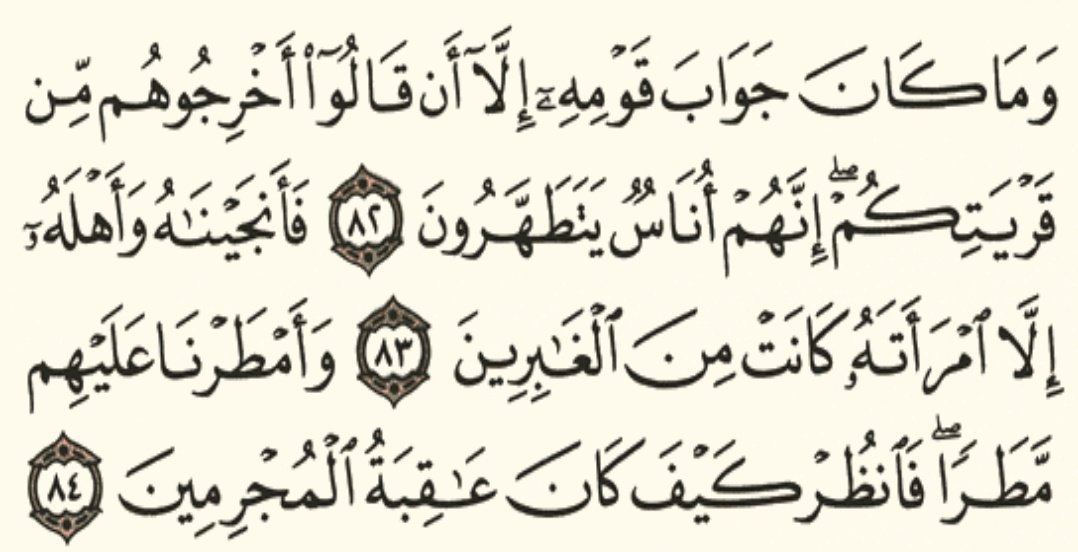 وَمَا كَانَ جَوَابَ قَوْمِهِۦٓ إِلَّآ أَن قَالُوٓا۟ أَخْرِجُوهُم مِّن
قَرْيَتِكُمْ ۖ إِنَّهُمْ أُنَاسٌ يَتَطَهَّرُونَ ٨٢ فَأَنجَيْنَـٰهُ وَأَهْلَهُۥٓ
إِلَّا ٱمْرَأَتَهُۥ كَانَتْ مِنَ ٱلْغَـٰبِرِينَ ٨٣ وَأَمْطَرْنَا عَلَيْهِم
مَّطَرًا ۖ فَٱنظُرْ كَيْفَ كَانَ عَـٰقِبَةُ ٱلْمُجْرِمِينَ ٨٤